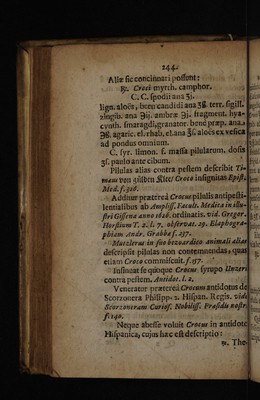 244.
Aliæ sic concinnari possunt:
℞. Croci myrrh. camphor.
C. C. spodii ana ʒj.
lign. aloës, been candidi ana ʒß. terr. sigill.
zingib. ana ℈ij. ambræ ℈j. fragment. hya-
cynth. smaragdi, granator. bene præp. ana.
℈ß. agaric. el. rhab. el. ana ʒß. aloës ex vesica
ad pondus omnium.
C. syr. limon. f. massa pilularum. dosis
ʒß. paulo ante cibum.
Pilulas alias contra pestem describit Ti-
mæus von Croco insignitas Epist.
Med. f. 326.
Additur præterea Crocus pilulis antipesti-
lentialibus ab Ampliss. Facult. Medica in illu-
stri Gissena anno 1626. ordinatis. vid. Gregor.
Horstium T. 2. l. 7. observat. 29. Elaphogra-
phiam Andr. Grabba f. 237.
in suo bezoardico animali alias
descripsit pilulas non contemnendas, quas
etiam Croco commiscuit. f. 157.
Insinuat se quoque Crocus syrupo
contra pestem. Antidot. l. 2.
Veneratur præterea Crocum antidotus de
Scorzonera Philipp. 2. Hispan. Regis. vide
Scorzoneram Curios. Nobiliss. Præsidis nostri
f. 140.
Neque abesse voluit Crocus in antidoto
Hispanica, cujus hæc est descriptio:
℞. The-